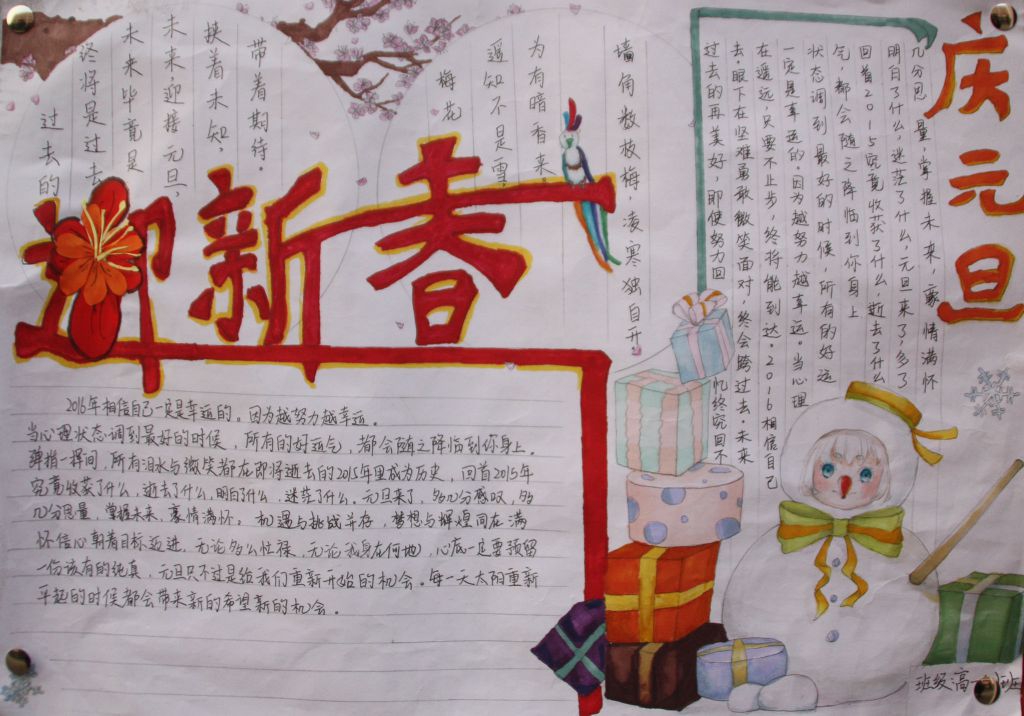 迎新春
庆元旦
带着期待,
挟着未知,
未来,迎接元旦,
未来毕竟是
终将是过去
过去的
梅花
墙角数枝梅,凌寒独自开。
遥知不是雪,
为有暗香来
过去的再美好,即使努力回忆终究回不
去,眼下在坚难勇敢微笑面对,终会跨过去。未来
在遥远,只要不止步,终将能到达。2016相信自己
一定是幸运的。因为越努力越幸运。当心理
状态调到最好的时候,所有的好运
气,都会随之降临到你身上
回首2015究竟收获了什么 逝去了什么
明白了什么,迷茫了什么,元旦来了多了
几分思量,掌握未来,豪情满怀
2016年相信自己一定是幸运的。因为越努力越幸运。
当心理状态调到最好的时候,所有的好运气,都会随之降临到你身上。
弹指一挥间,所有泪水与微笑都在即将逝去的2015年里成为历史,回首2015年
究竟收获了什么,逝去了什么,明白了什么,迷茫了什么。元旦来了,多几分感叹,多
几分思量,掌握未来、豪情满怀。机遇与挑战并存,梦想与辉煌同在满
怀信心朝着目标迈进,无论多么忙禄,无论我身在何地,心底一定要预留
一份该有的纯真,元旦只不过是给我们重新开始的机会。每一天太阳重新
升起的时候都会带来新的希望新的机会。
班级:高一